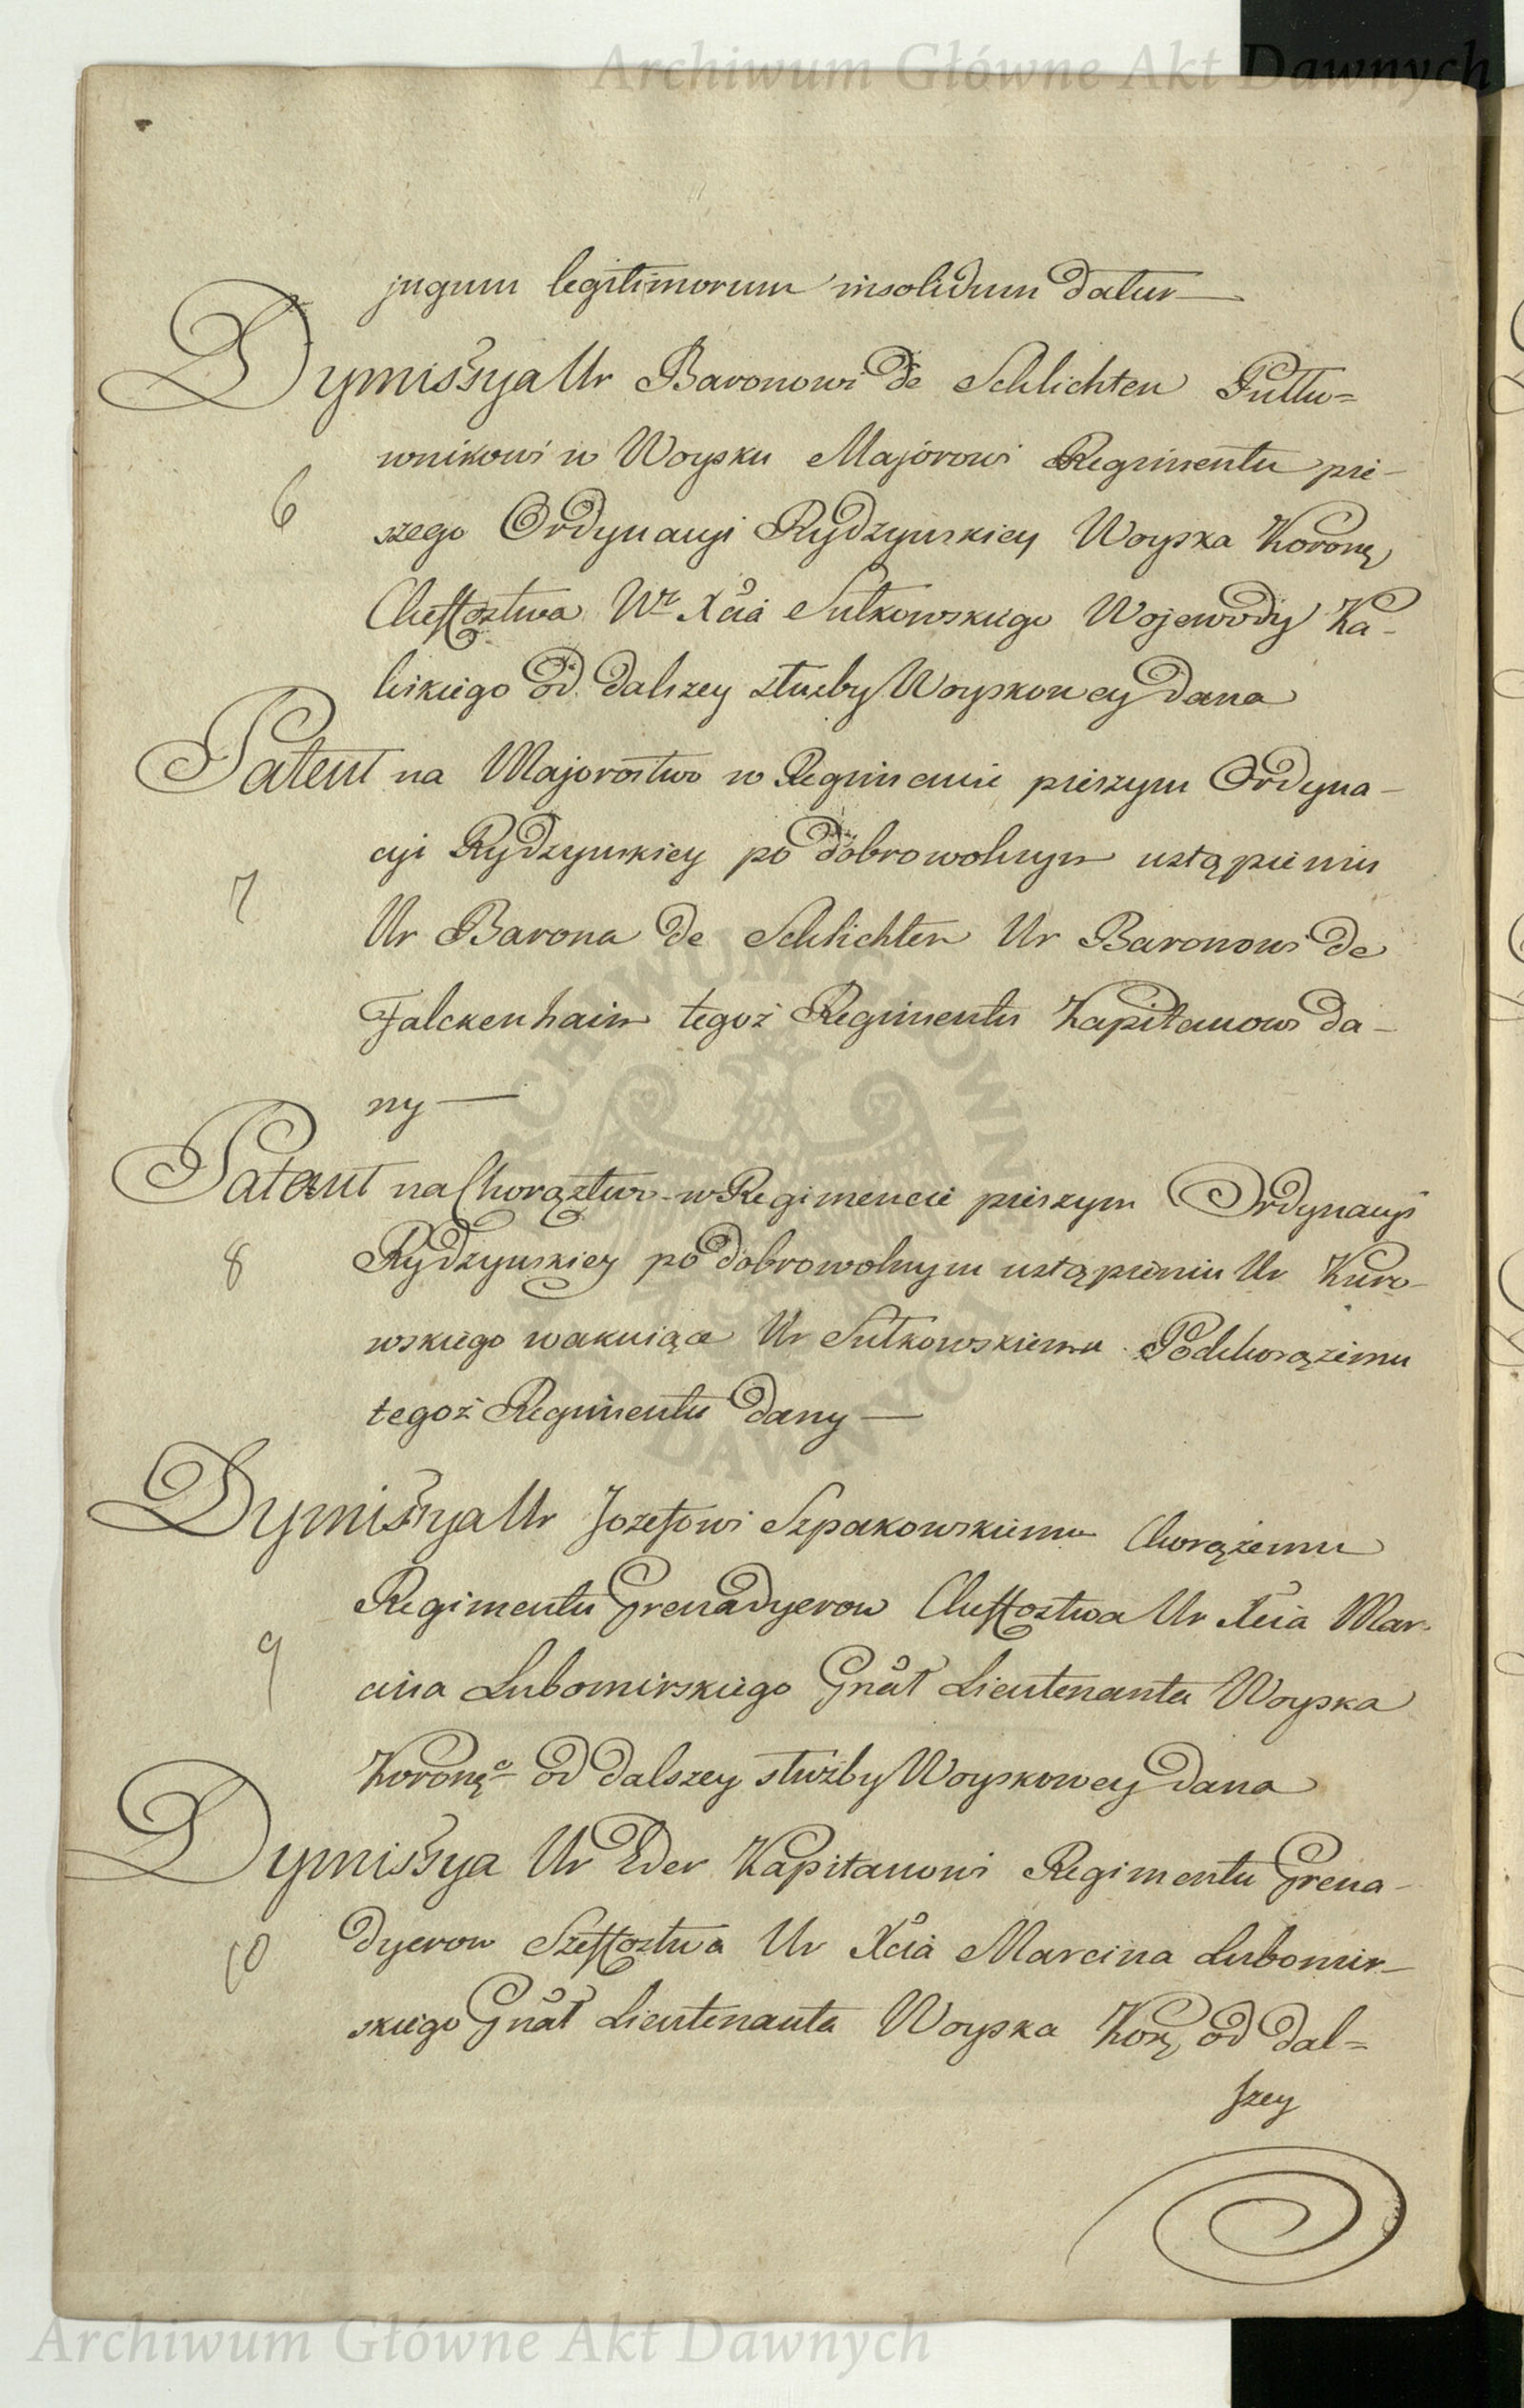 Archiwum Główne Akt Dawnych
jugum legitimorum insolidum datur
Dymissya Ur Baronowi de Schlichten Pułku=
wnikowi w Woysku Majorowi Regimentu pie-
6
szego Ordynacyi Rydzynskiey Woyska Koronę
Cheffostwa Ur Xcia Sułkowskiego Wojewody Ka-
liskiego od dalszey służby Woyskowey dana
Patent na Majorostwo w Regimencie pieszym Ordyna-
cyi Rydzynskiey po dobrowolnym ustąpieniu
7
Ur Barona de Schlichten Ur Baronowi de
Falckenhain tegoż Regimentu Kapitanowi da-
ny
Patent na Chorąztwo w Regimencie pieszym Ordynacyi
8
Rydzynskiey po dobrowolnym ustąpieniu Ur Kuro-
wskiego wakuiące Ur Sułkowskiemu Podchorązemu
tegoż Regimentu dany
Dymissya Ur Jozefowi Szpakowskiemu Chorążemu
Regimentu Grenadyerow Cheffostwa Ur Xcia Mar-
9
cina Lubomirskiego Gnał Lieutenanta Woyska
Koronęo od dalszey służby Woyskowey dana
Dymissya Ur Eder Kapitanowi Regimentu Grena-
10
dyerow Szeffostwa Ur Xcia Marcina Lubomir-
skiego Gnał Lieutenanta Woyska Korę od dal=
szey
Archiwum Główne Akt Dawnych